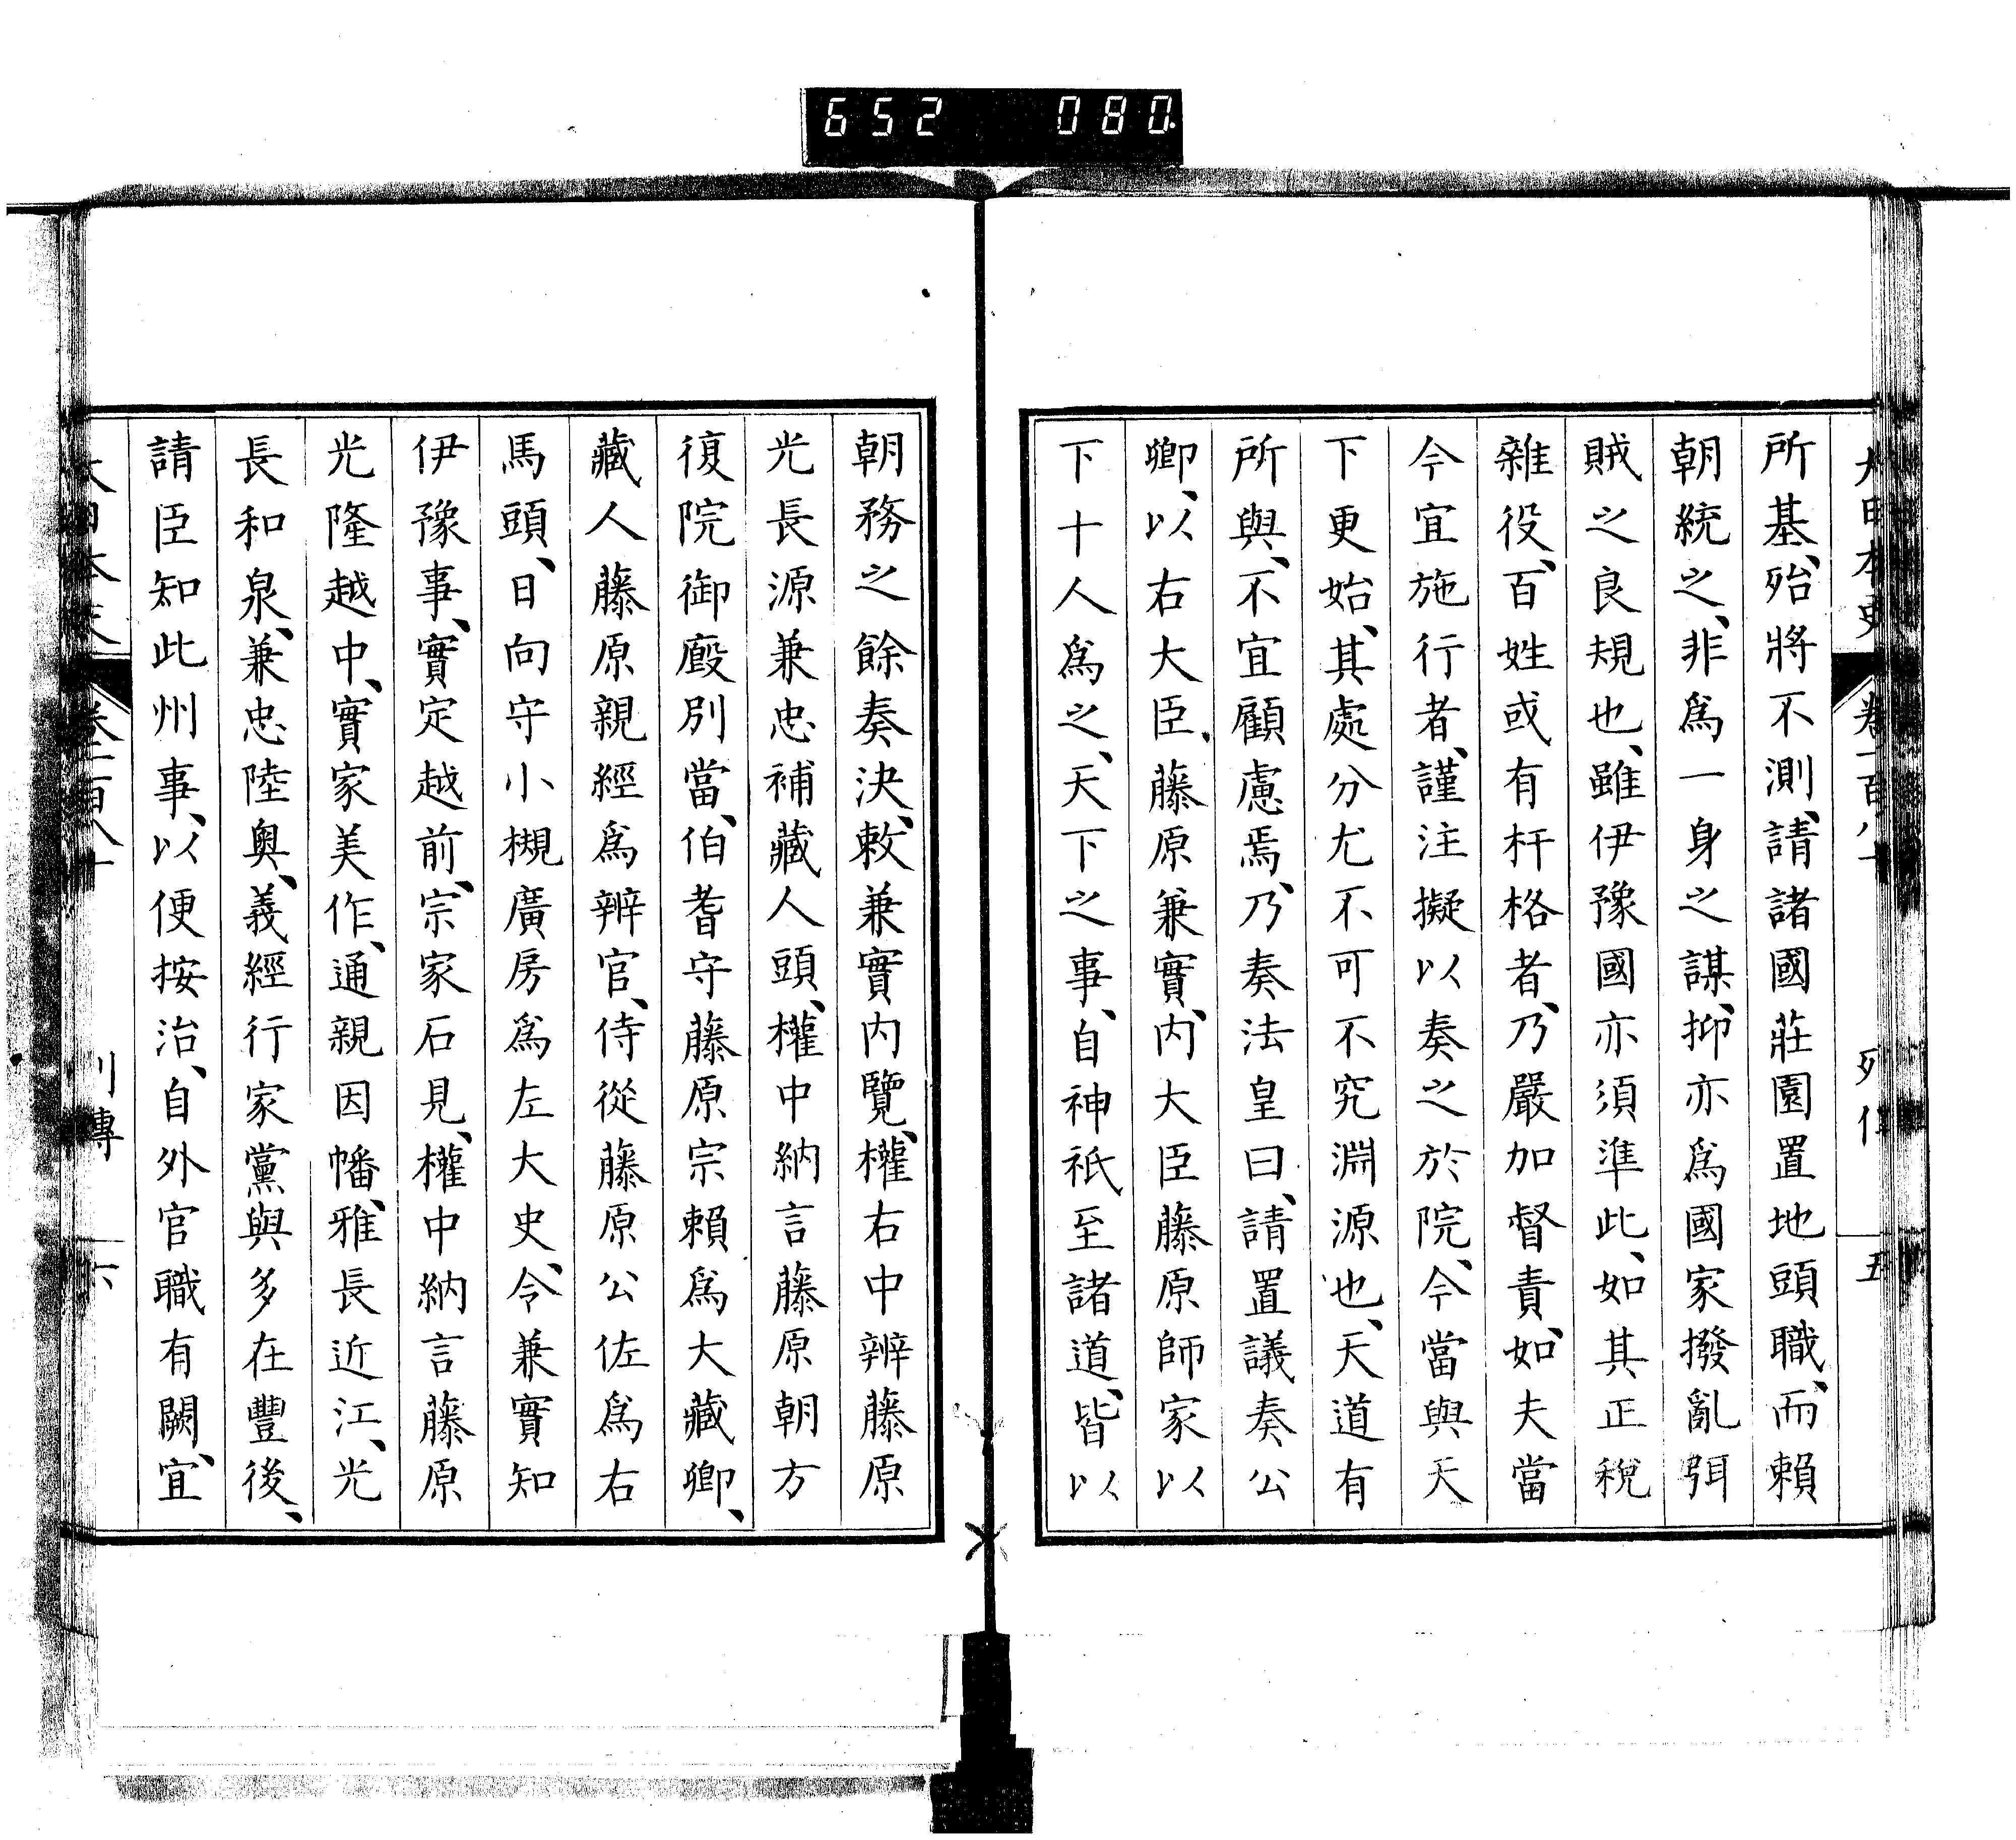 652 080
大日本史 卷一百八十 列傳 五
所基、殆將不測、請諸國莊園置地頭職、而賴
朝統之、非爲一身之謀、抑亦爲國家撥亂弭
賊之良規也、雖伊豫國亦須準此、如其正稅
雜役、百姓或有杆格者、乃嚴加督責、如夫當
今宜施行者、謹注擬以奏之於院、今當與天
下更始、其處分尤不可不究淵源也、天道有
所與、不宜顧慮焉、乃奏法皇曰、請置議奏公
卿、以右大臣藤原兼實、內大臣藤原師家以
下十人爲之、天下之事、自神祇至諸道、皆以
朝務之餘奏決、敕兼實內覽、權右中辨藤原
光長源兼忠補藏人頭、權中納言藤原朝方
復院御廄別當、伯耆守藤原宗賴爲大藏卿、
藏人藤原親經爲辨官、侍從藤原公佐爲右
馬頭、日向守小槻廣房爲左大史、令兼實知
伊豫事、實定越前、宗家石見、權中納言藤原
光隆越中、實家美作、通親因幡、雅長近江、光
長和泉、兼忠陸奧、義經行家黨與多在豐後、
請臣知此州事、以便按治、自外官職有闕、宜
大日本史 卷一百八十 列傳 六